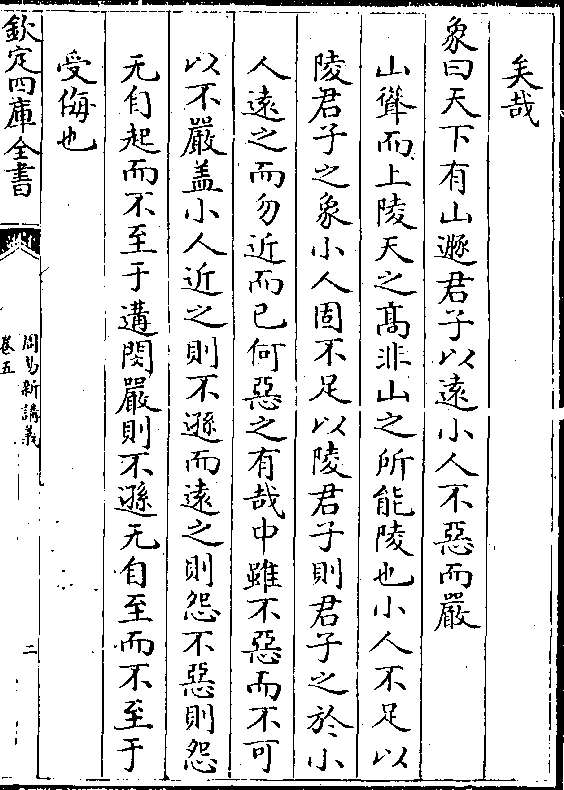 矣哉
象曰天下有山遯君子以遠小人不惡而嚴
山聳而上陵天之髙非山之所能陵也小人不足以
陵君子之象小人固不足以陵君子則君子之於小
人遠之而勿近而已何惡之有哉中雖不惡而不可
以不嚴盖小人近之則不遜而遠之則怨不惡則怨
无自起而不至于遘閔嚴則不遜无自至而不至于
受侮也
欽定四庫全書
周易新講義
卷五
二